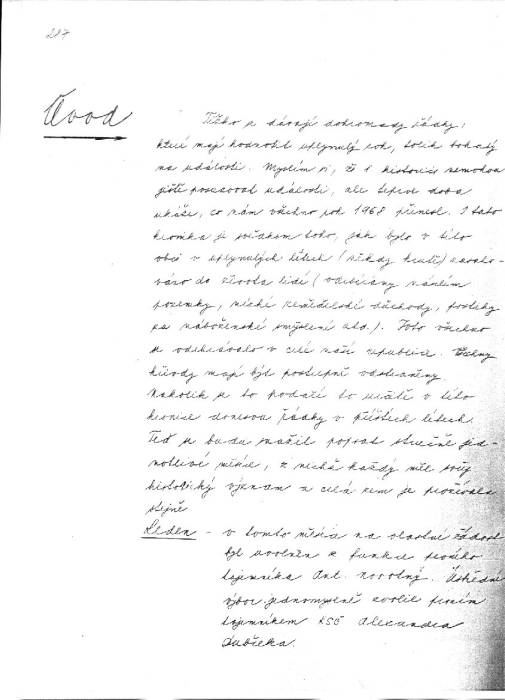 217
Úvod
Těžko se dávají dohromady řádky,
které mají hodnotit uplynulý rok, tolik bohatý
na události. Myslím si, že i historici nemohou
ještě posuzovat události, ale teprve doba
ukáže, co nám všechno rok 1968 přinesl. I tato
kronika je svědkem toho, jak bylo v této
obci v uplynulých létech (někdy krutě) zasaho-
váno do života lidí (odebírány násilím
pozemky, nízké zemědělské důchody, postihy
za náboženské smýšlení atd.). Toto všechno
se odehrávalo v celé naší republice.
křivdy mají být postupně odstraněny.
Nakolik se to podaří to určitě v této
kronice donesou řádky v příštích létech.
Teď se budu snažit popsat stručně jed-
notlivé měsíce, z nichž každý měl svůj
historický význam a celá zem je prožívala
stejně
Leden - v tomto měsíci na vlastní žádost
byl uvolněn z funkce prvního
tajemníka Ant. Novotný. Ústřední
výbor jednomyslně zvolil prvním
tajemníkem KSČ Alexandra
Dubčeka.